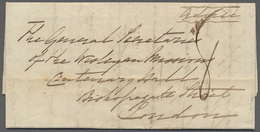 The General Secretaries
of the Wesleyan Missions
Centenary Hall
Bishopsgate Street
London